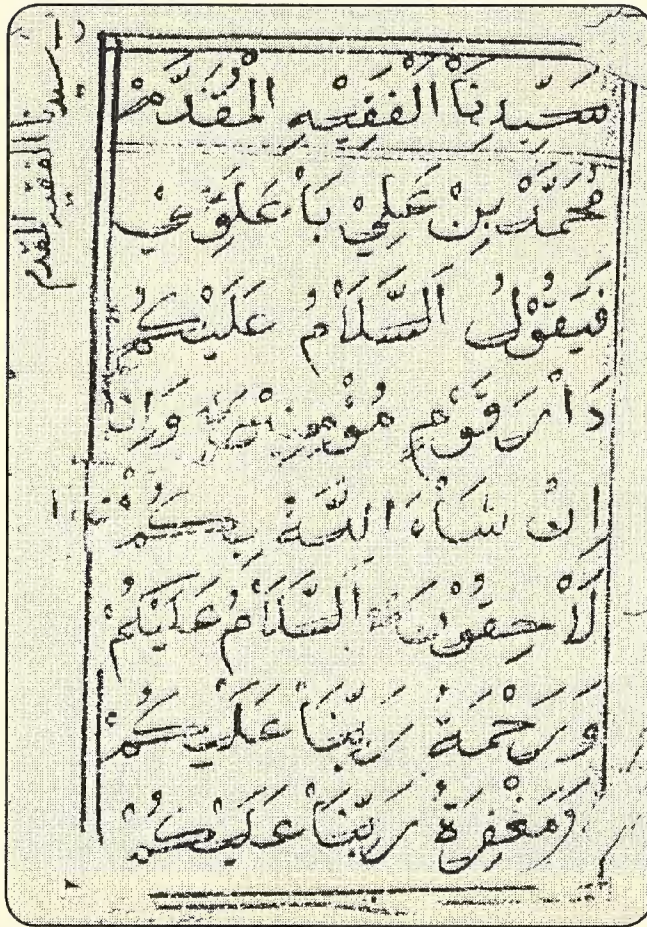 سَيِّدِنَاْ الْفَقِيْهِ الْمُقَدَّمْ
مُحَمَّدْ بِنْ عَلِيْ بَاْعَلَوِيْ
فَيَقُوْلُ اَلسَّلَاْمُ عَلَيْكُمْ
دَاْرَ قَوْمٍ مُؤْمِنِيْنَ وَاِنَّ
اِنْ شَاْءَ اللّٰهُ بِكُمْ
لَاْحِقُوْنَ اَلسَّلَاْمُ عَلَيْكُمْ
وَرَحْمَةُ رَبِّنَاْ عَلَيْكُمْ
وَمَغْفِرَةُ رَبِّنَاْ عَلَيْكُمْ
سيدنا الفقيه المقدم